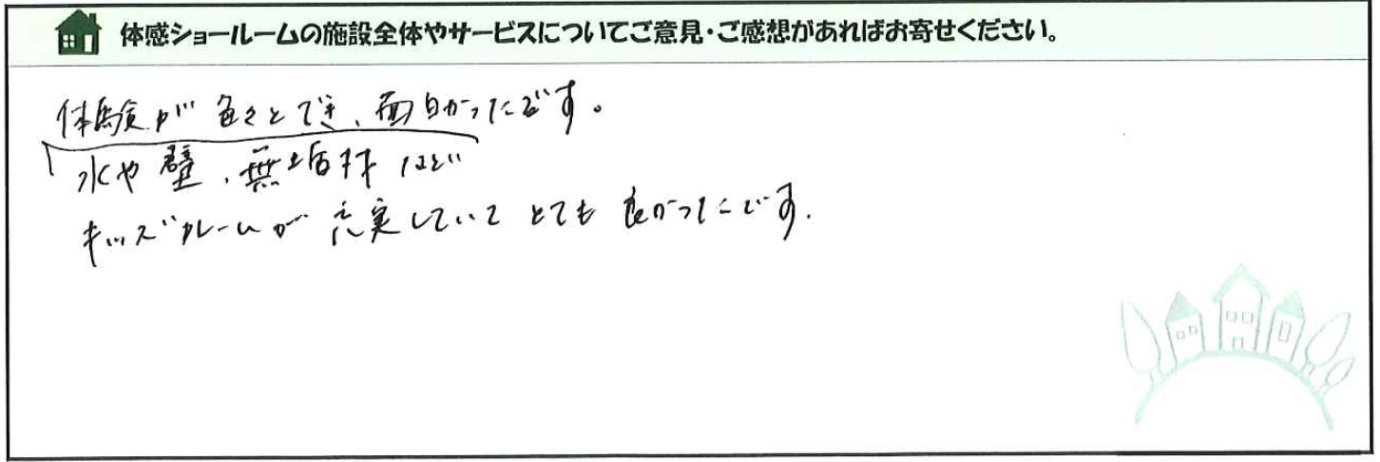 体感ショールームの施設全体やサービスについてご意見・ご感想があればお寄せください。
体験が色々とでき、面白かったです。
水や壁、無垢材など
キッズルームが充実していてとても良かったです。